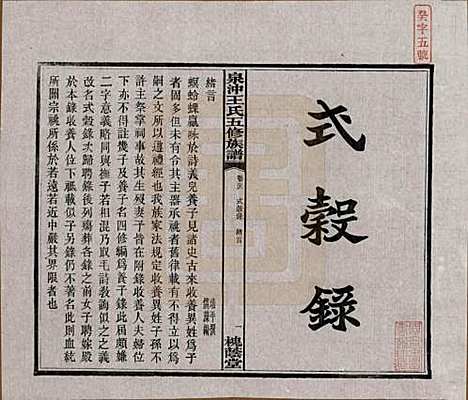 癸字五號
式穀錄
泉沖王氏五修族譜
卷末 式穀錄 緒言
一 槐蔭堂
緒言
螟蛉蜾蠃詠於詩義兒養子見諸史古來收養異姓子為子
者固多但未有令其主器承祧者舊律載有不得立以為
嗣之文所以道禮經也我族家法規定收養異姓子孫不
許主祭掌祠事故其生殁子晉在附錄收養人夫婦紀
下但不得註幾子及養子名四修編為養子錄此屆頗嫌
二字意義略同與撫子若相混乃取毛詩教誨似之之義
改名式穀錄次歸聘錄後列殤葬各錄之前女子聘嫁殿
於本錄收養人下祗載其子另錄仍不著名此則血統
所關宗祧所係於若遠若近中嚴其界限者也